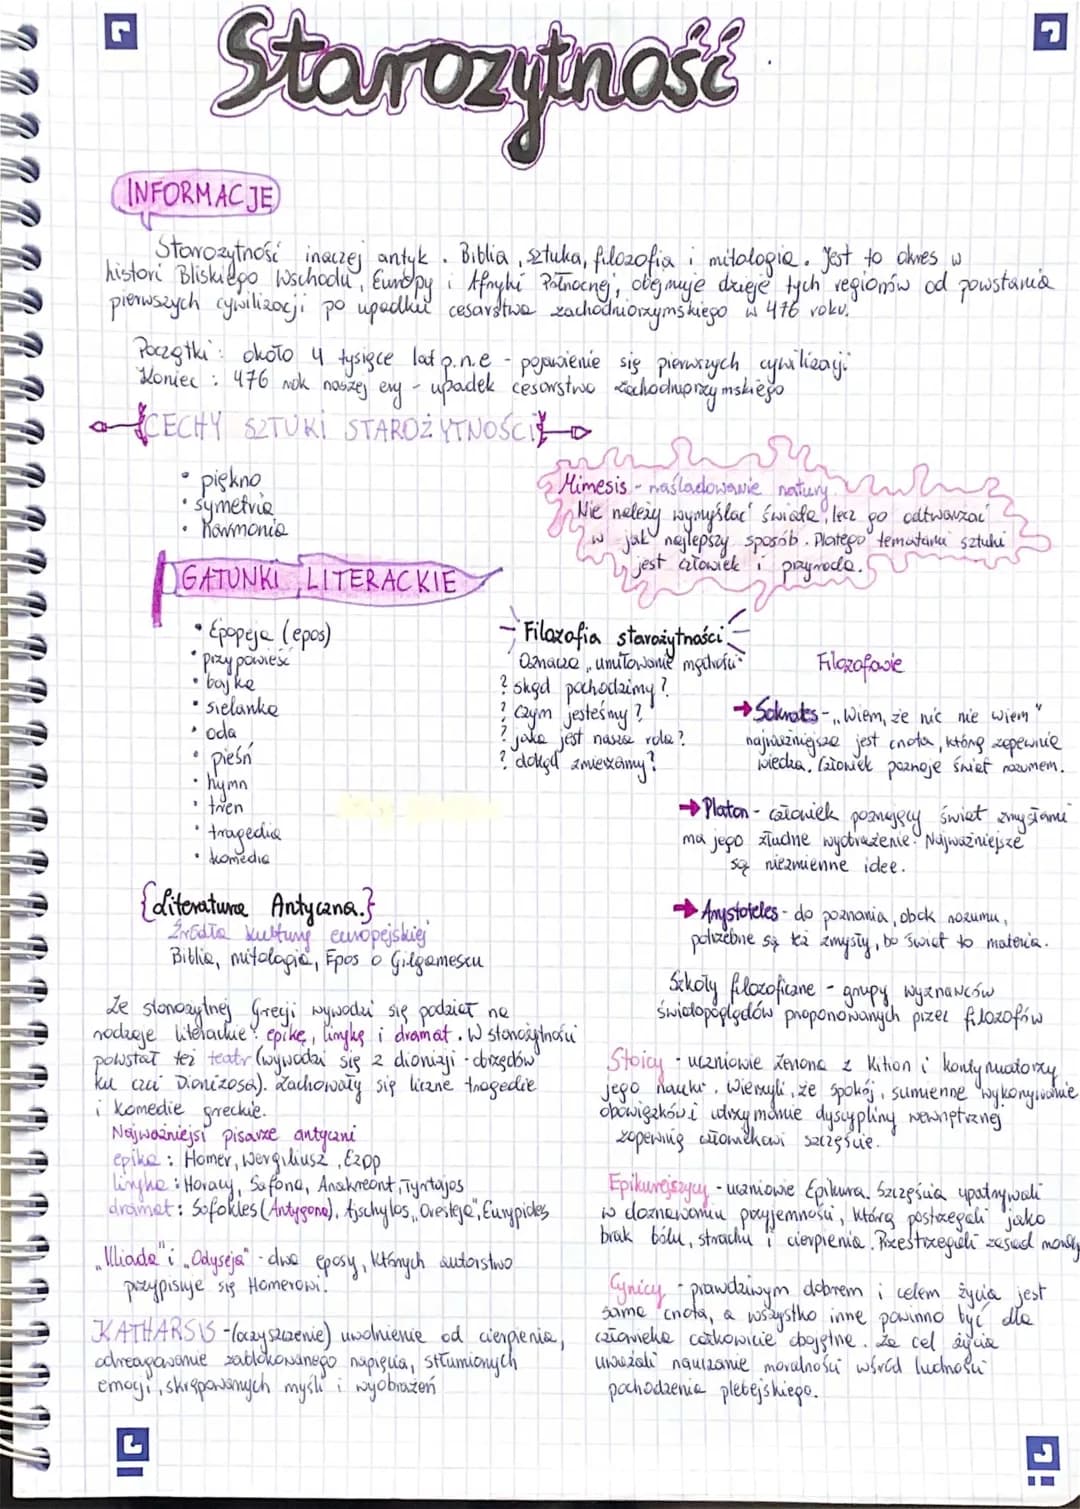 Starożytność
INFORMACJE
Starożytność inaczej antyk. Biblia, sztuka, filozofia i mitologia. Jest to okres w
histori Bliskiego Wschodu, Europy i Afryki Północnej, obejmuje dzieje tych regionów od powstania
pierwszych cywilizacji po upadku cesarstwa zachodniorzymskiego w 476 roku.
Początki: około 4 tysięce lat p.n.e - pojawienie się pierwszych cywilizacji
Koniec: 476 rok naszej ery - upadek cesarstwa zachodniorzymskiego
CECHY SZTUKI STAROŻYTNOŚCI
• piękno
• symetria
• harmonia
Mimesis - naśladowanie natury.
Nie należy wymyślać świata, lecz go odtwarzać
w jak najlepszy sposób. Dlatego tematami sztuki
jest człowiek i przyroda.
GATUNKI LITERACKIE
• Epopeja (epos)
• przypowieść
• bajka
• sielanka
• oda
• pieśń
• hymn
• tren
• tragedia
• komedia
Filozofia starożytności
Oznacza „umiłowanie mądrości"
? skąd pochodzimy?
? czym jesteśmy?
? jaka jest nasza rola?
? dokąd zmierzamy?
Filozofowie
→ Sokrates - „Wiem, że nic nie wiem"
najważniejsza jest cnota, którą zapewnia
wiedza. Człowiek poznaje świat rozumem.
→ Platon - człowiek poznający świat zmysłami
ma jego złudne wyobrażenie. Najważniejsze
są niezmienne idee.
→ Arystoteles - do poznania, obok rozumu,
potrzebne są też zmysły, bo świat to materia.
Szkoły filozoficzne - grupy wyznawców
światopoglądów proponowanych przez filozofów
Stoicy - uczniowie Zenona z Kition i kontynuatorzy
jego nauki. Wierzyli, że spokój, sumienne wykonywanie
obowiązków i utrzymanie dyscypliny wewnętrznej
zapewnią człowiekowi szczęście.
Epikurejczycy - uczniowie Epikura. Szczęścia upatrywali
w doznawaniu przyjemności, którą postrzegali jako
brak bólu, strachu i cierpienia. Przestrzegali zasad
Cynicy - prawdziwym dobrem i celem życia jest
sama cnota, a wszystko inne powinno być dla
człowieka całkowicie obojętne. Za cel życia
uważali nauczanie moralności wśród ludności
pochodzenia plebejskiego.
{Literatura Antyczna.}
Źródła kultury europejskiej
Biblia, mitologia, Epos o Gilgameszu
Ze starożytnej Grecji wywodzi się podział na
rodzaje literackie: epikę, lirykę i dramat. W starożytności
powstał też teatr (wywodzi się z dionizji - obrzędów
ku czci Dionizosa). Zachowały się liczne tragedie
i komedie greckie.
Najważniejsi pisarze antyczni
epika: Homer, Wergiliusz, Ezop
liryka: Horacy, Safona, Anakreont, Tyrtajos
dramat: Sofokles (Antygona), Ajschylos „Oresteja", Eurypides
„Iliada" i „Odyseja" - dwa eposy, których autorstwo
przypisuje się Homerowi.
KATHARSIS - (oczyszczenie) uwolnienie od cierpienia,
odreagowanie zablokowanego napięcia, stłumionych
emocji, skrępowanych myśli i wyobrażeń